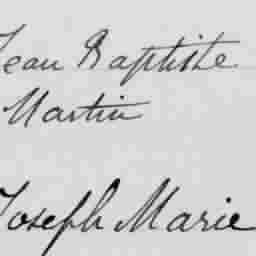 Jean Baptiste
Martin
Joseph Marie